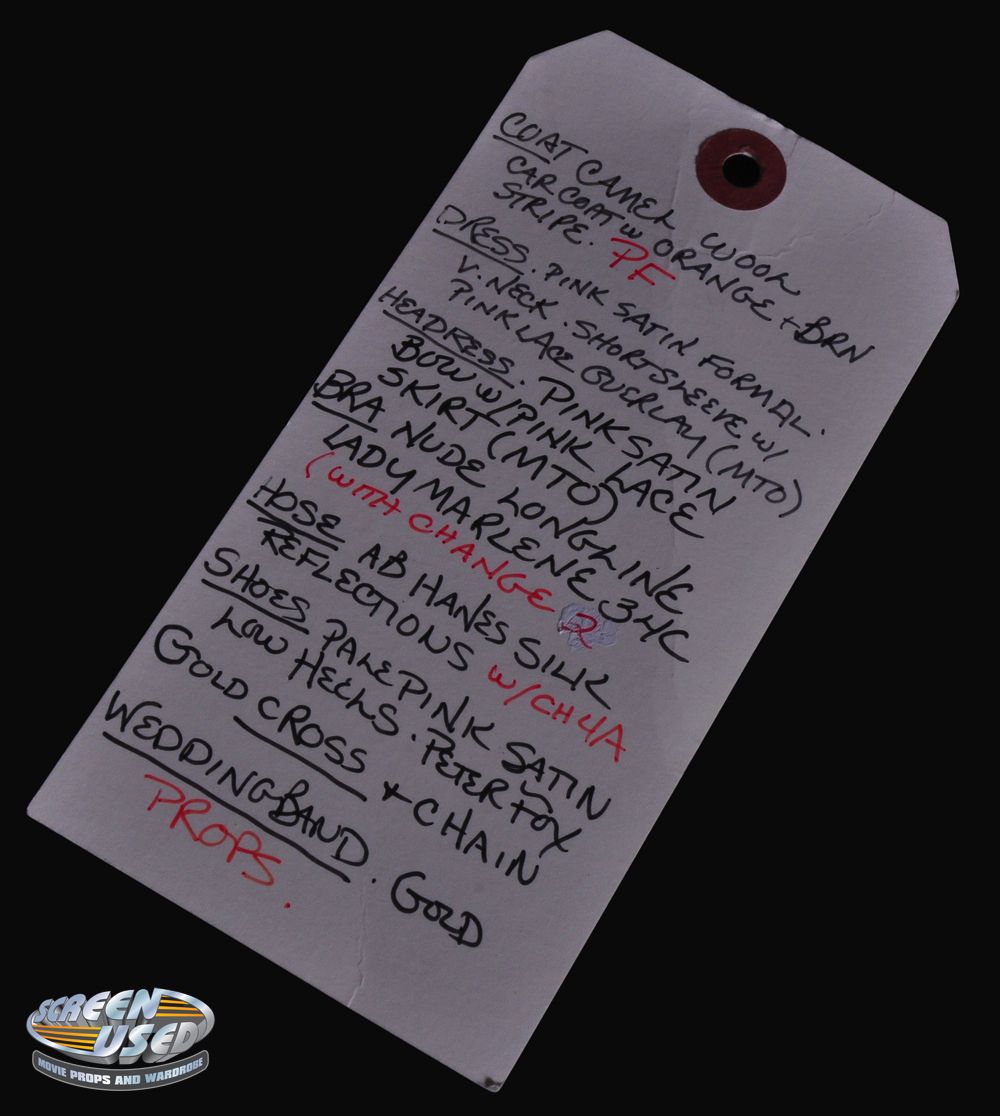 COAT CAMEL WOOL
CAR COAT W ORANGE + BRN
STRIPE. PF
DRESS. PINK SATIN FORMAL.
V. NECK. SHORTSLEEVE W/
PINK LACE OVERLAY (MTO)
HEADRESS. PINK SATIN
BOW W/PINK LACE
SKIRT (MTO)
BRA NUDE LONGLINE
LADY MARLENE 34C
(WITH CHANGE 2
HOSE AB HANES SILK
REFLECTIONS W/CH4A
SHOES PALE PINK SATIN
LOW HEELS. PETER FOX
GOLD CROSS + CHAIN
WEDDING BAND. GOLD
PROPS.
SCREEN
USED
MOVIE PROPS AND WARDROBE